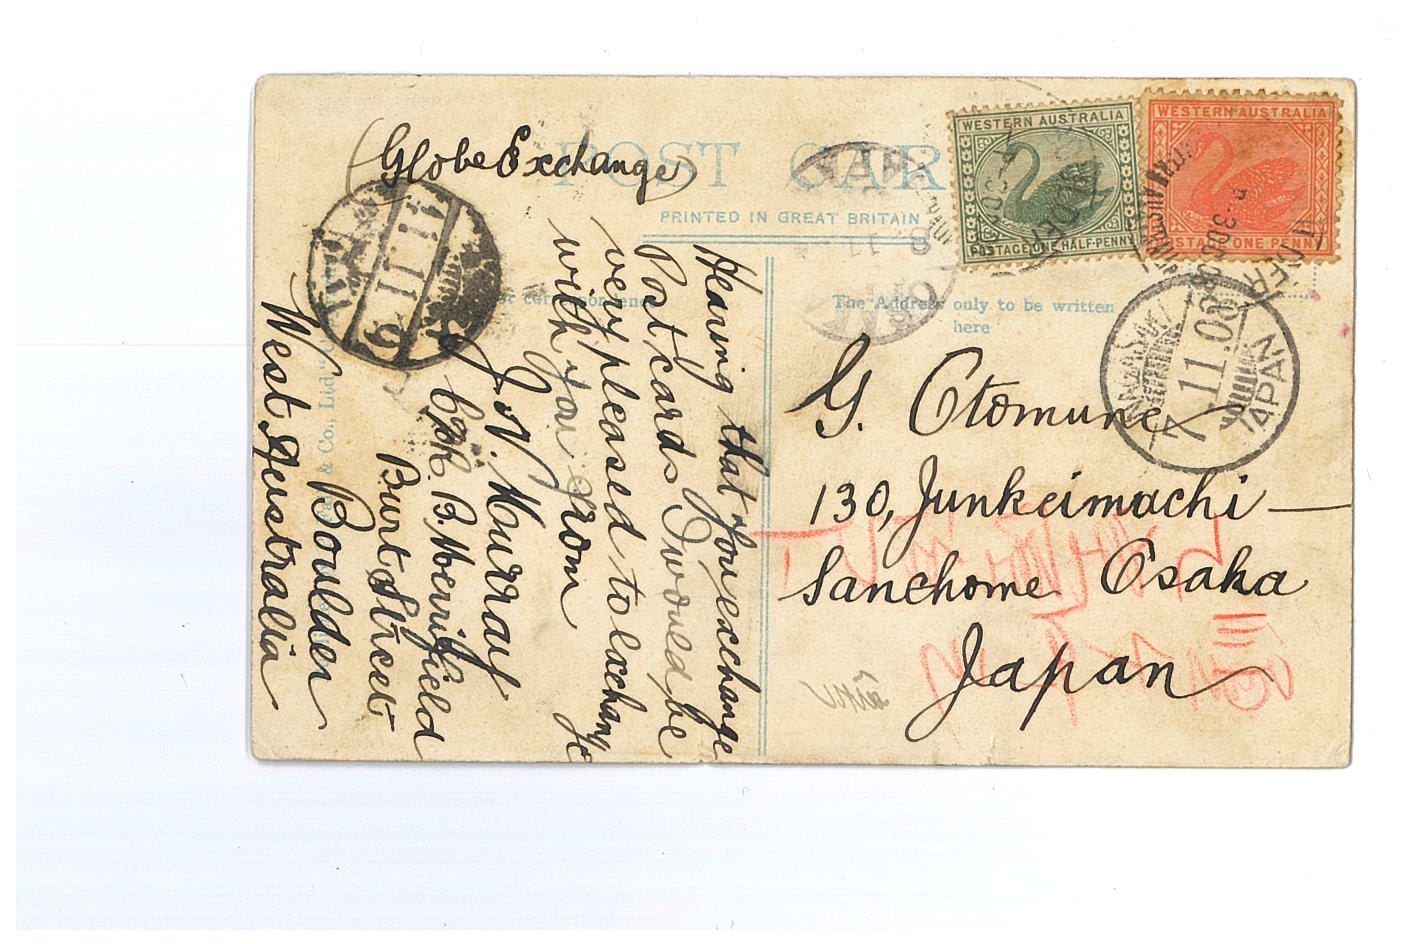 (Globe Exchange)
POST CAR
PRINTED IN GREAT BRITAIN
WESTERN AUSTRALIA
POSTAGE ONE HALF-PENNY
WESTERN AUSTRALIA
POSTAGE ONE PENNY
The Address only to be written
here
for correspondence
& Co., Ltd.
Hearing that you exchange
Post cards I would be
very pleased to exchange
with you from
yo
J. N. Murray
C/o R. B. Merrifield
Burt Street
Boulder
West Australia
G. Otomune
130, Junkeimachi —
Sanchome Osaka
Japan
NAGASAKI
7.11.08
JAPAN
11.11.9